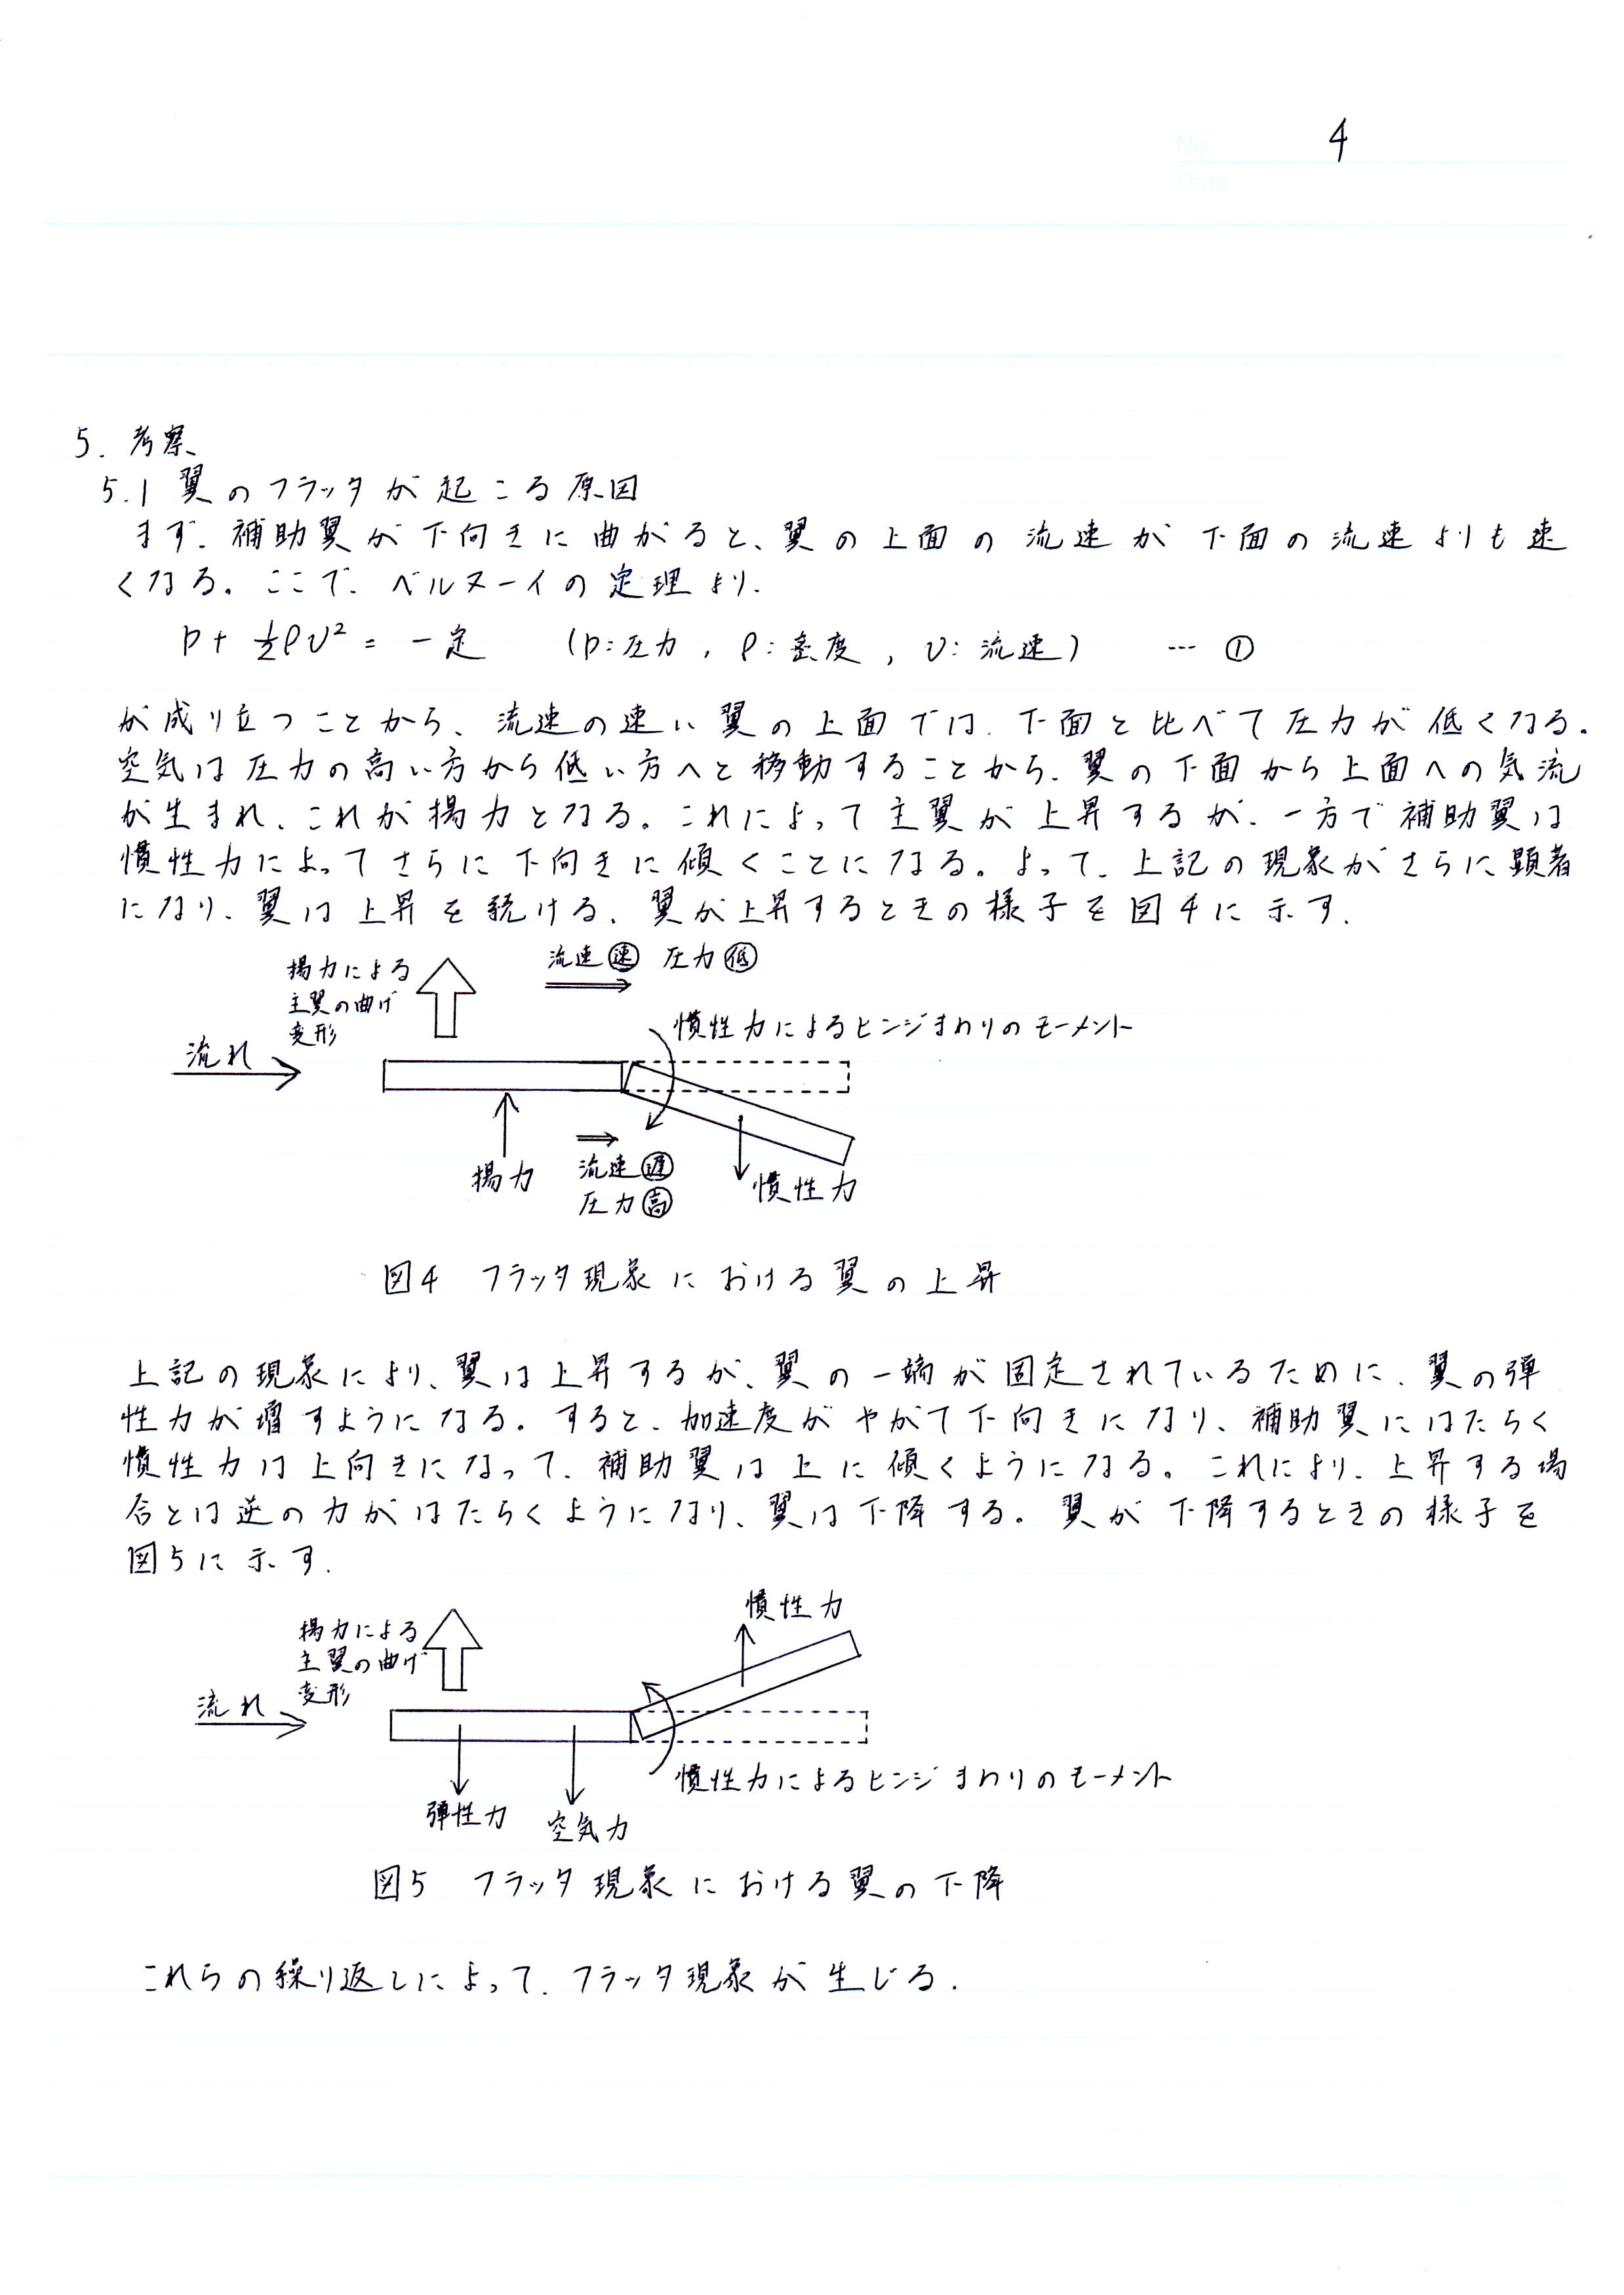 No. 4
Date
5. 考察
5.1 翼のフラッタが起こる原因
まず、補助翼が下向きに曲がると、翼の上面の流速が下面の流速よりも速
くなる。ここで、ベルヌーイの定理より、
p + 1/2 ρv² = 一定 (p:圧力, ρ:密度, v:流速) … ①
が成り立つことから、流速の速い翼の上面では、下面と比べて圧力が低くなる。
空気は圧力の高い方から低い方へと移動することから、翼の下面から上面への気流
が生まれ、これが揚力となる。これによって主翼が上昇するが、一方で補助翼は
慣性力によってさらに下向きに傾くことになる。よって、上記の現象がさらに顕著
になり、翼は上昇を続ける。翼が上昇するときの様子を図4に示す.
揚力による
主翼の曲げ
変形
流速速 圧力低
慣性力によるヒンジまわりのモーメント
流れ
揚力
流速遅
圧力高
慣性力
図4 フラッタ現象における翼の上昇
上記の現象により、翼は上昇するが、翼の一端が固定されているために、翼の弾
性力が増すようになる。すると、加速度がやがて下向きになり、補助翼にはたらく
慣性力は上向きになって、補助翼は上に傾くようになる。これにより、上昇する場
合とは逆の力がはたらくようになり、翼は下降する。翼が下降するときの様子を
図5に示す.
慣性力
揚力による
主翼の曲げ
変形
流れ
慣性力によるヒンジまわりのモーメント
弾性力
空気力
図5 フラッタ現象における翼の下降
これらの繰り返しによって、フラッタ現象が生じる.